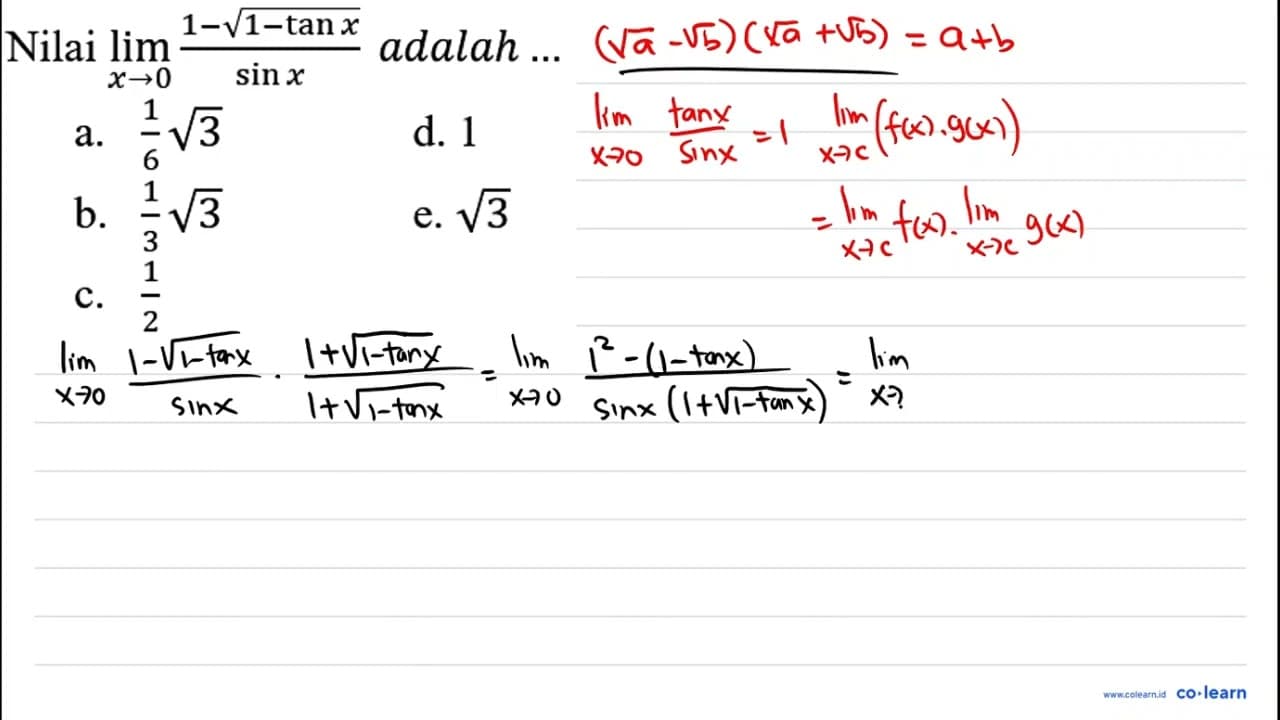 Nilai lim x→0 (1−√(1−tan x))/(sin x) adalah ...
a. 1/6 √3
d. 1
b. 1/3 √3
e. √3
c. 1/2
(√a -√b)(√a +√b) = a+b
lim x→0 tanx/sinx = 1
lim x→c (f(x).g(x))
= lim x→c f(x). lim x→c g(x)
lim x→0 (1-√(1-tanx))/(sinx) . (1+√(1-tanx))/(1+√(1-tanx)) = lim x→0 (1²-(1-tanx))/(sinx(1+√(1-tanx))) = lim x→
www.colearn.id co·learn